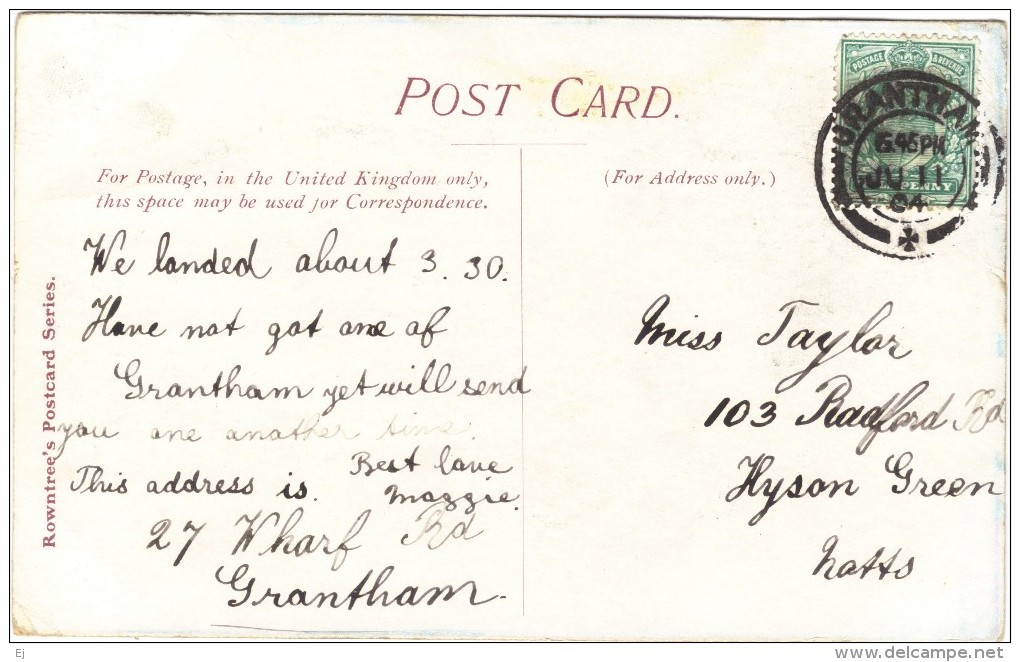 POST CARD.
For Postage, in the United Kingdom only,
this space may be used for Correspondence.
(For Address only.)
POSTAGE & REVENUE
GRANTHAM
6.45PM
JU 11
04
PENNY
Rowntree's Postcard Series.
We landed about 3.30.
Have not got one of
Grantham yet will send
you one another time.
Best love
Maggie.
This address is.
27 Wharf Rd
Grantham.
Miss Taylor
103 Radford Rd
Hyson Green
Notts
Ej
delcampe.net